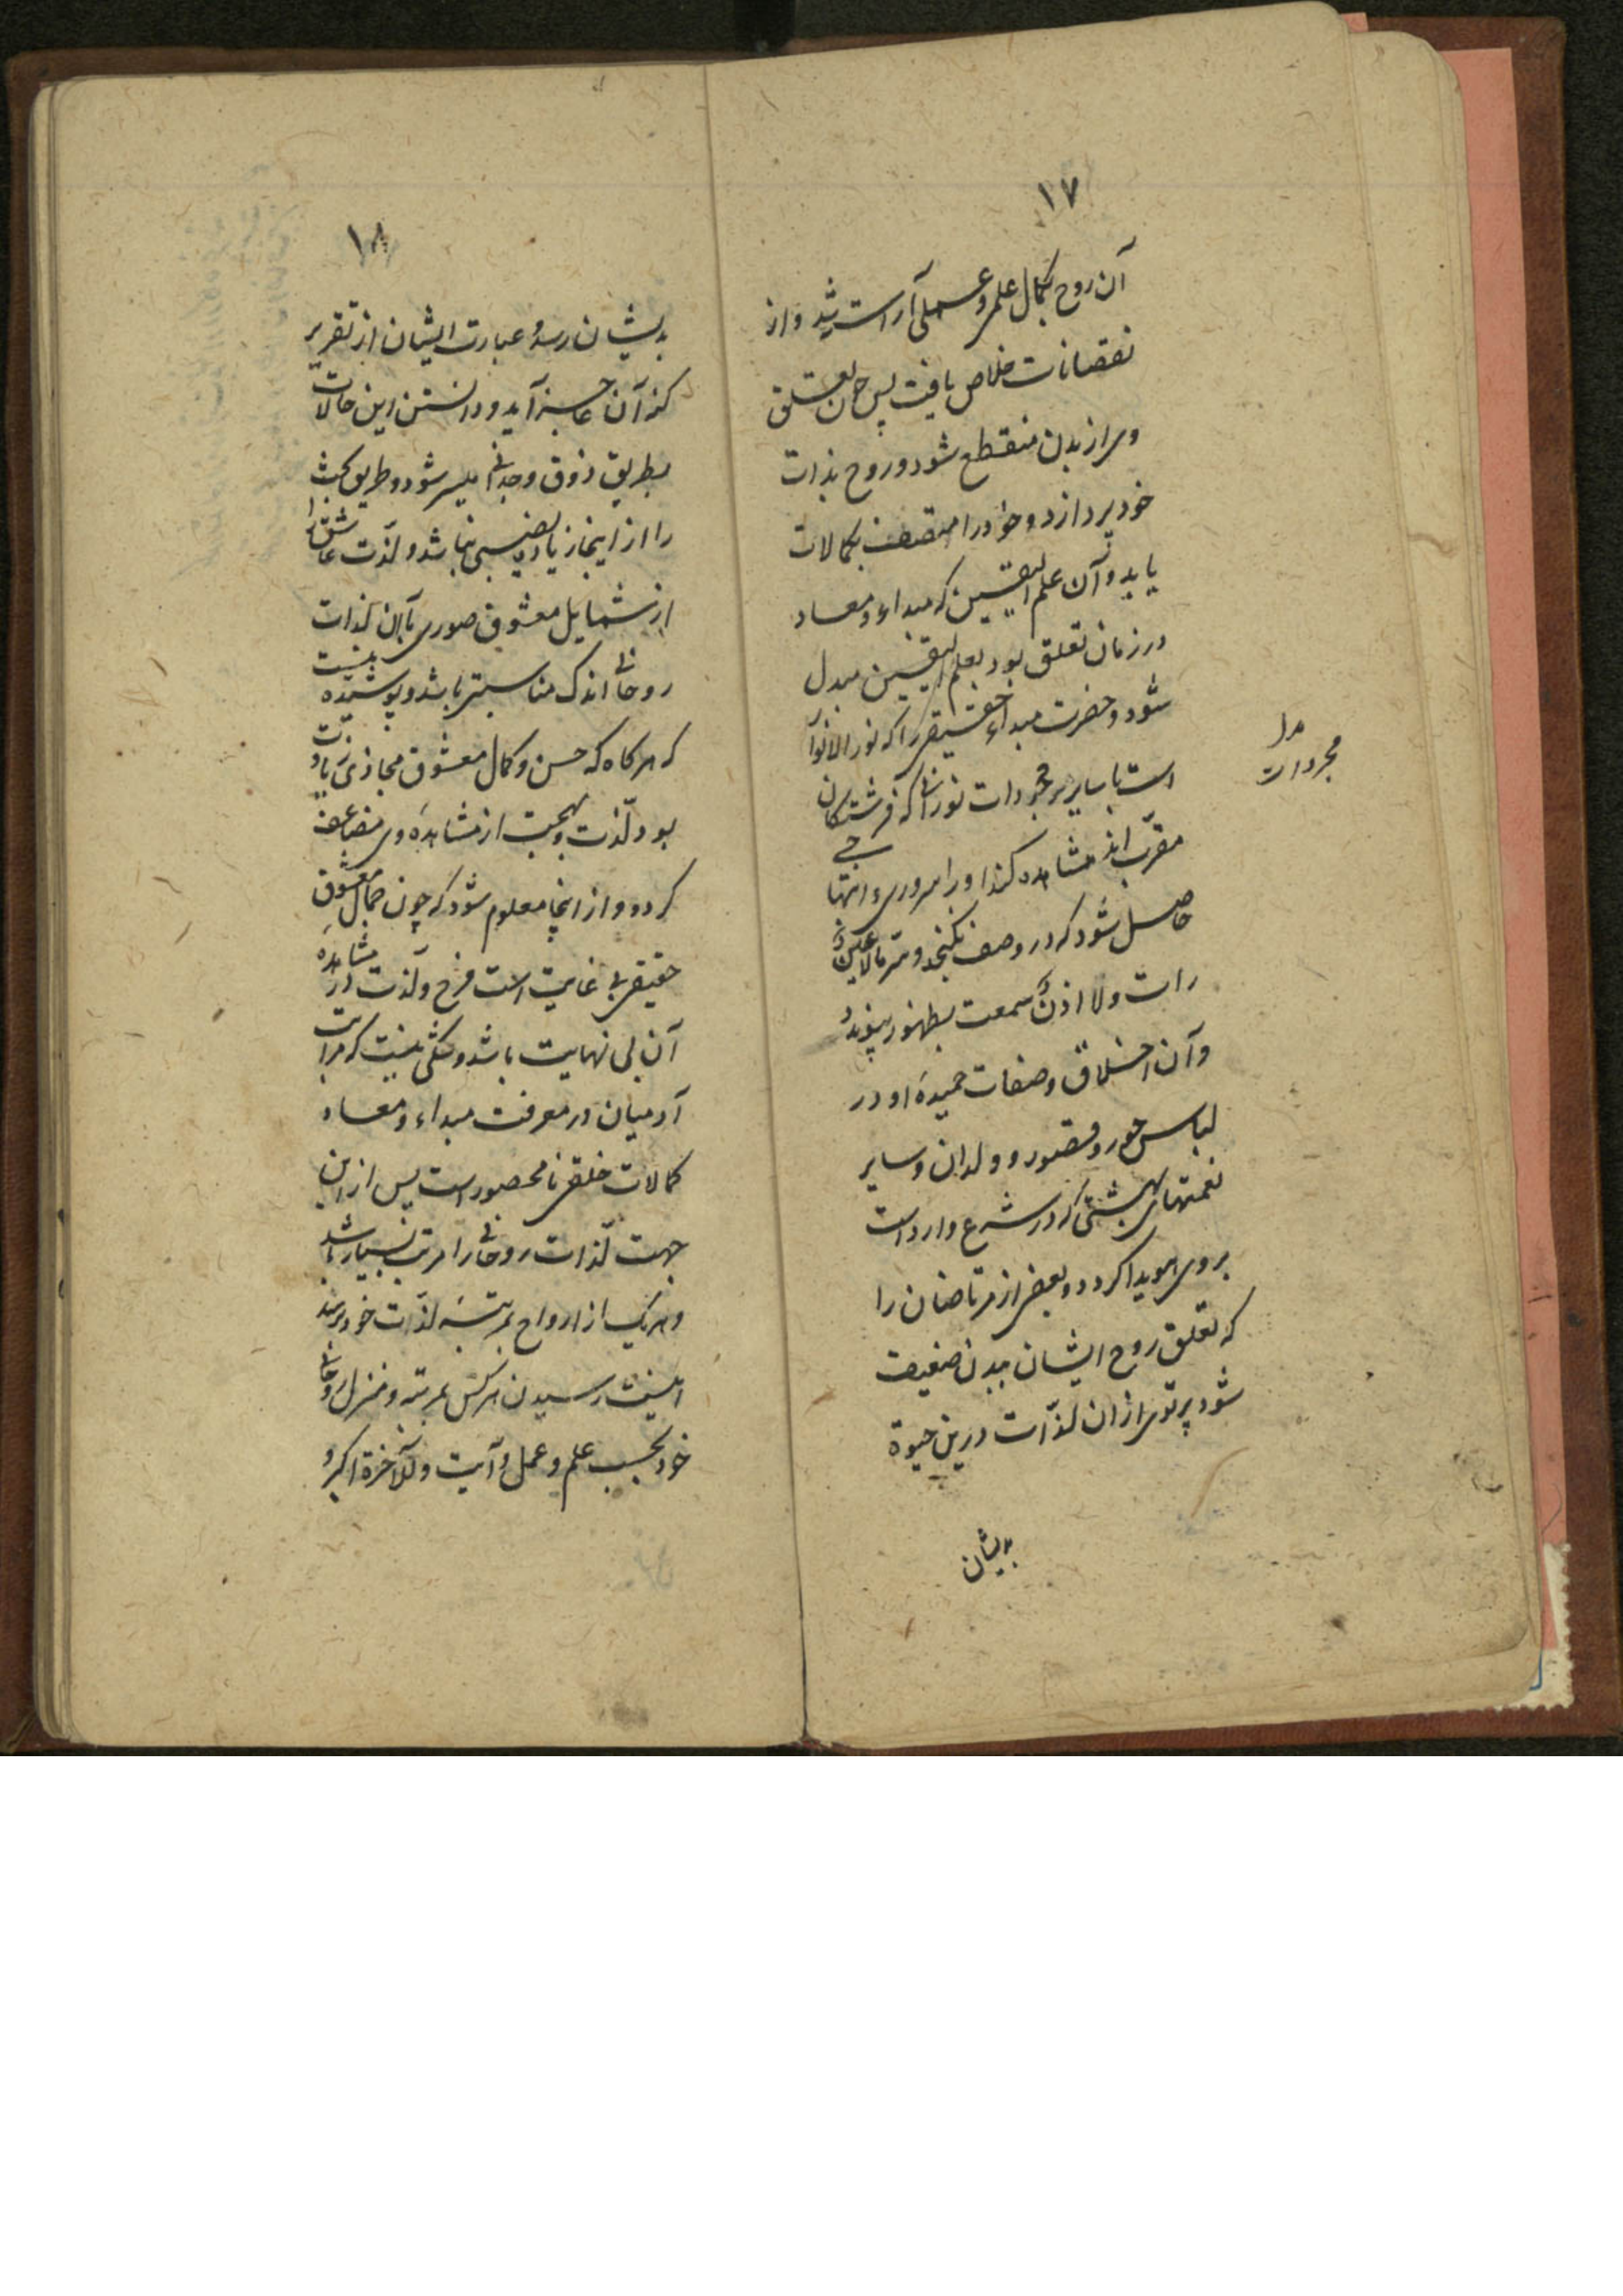 ١٧
آن روح بکمال علمی و عملی آراسته شد و از
نقصانات خلاص یافت پس چون تعلق
وی از بدن منقطع شود و روح بذات
خود پردازد و خود را متصف بکمالات
یابد و آن علم الیقین که مبداء و معاد
در زمان تعلق بود بعلم الیقین مبدل
شود و حضرت مبداء حقیقی را که نور الانوار
است با سایر مجردات نورانی که فرشتگان
مقرب اند مشاهده کند او را سروری و ابتهاجی
حاصل شود که در وصف نگنجد و سرّ ما لا عینٌ
رات ولا اذنٌ سمعت بظهور پیوندد
و آن اخلاق و صفات حمیدهٔ او در
لباس حور و قصور و ولدان و سایر
نعمتهای بهشتی که در شرع وارد است
بروی هویدا کردد و بعضی از مرتاضان را
که تعلق روح ایشان ببدن ضعیف
شود پرتوی از ان لذّات درین حیوة
بدیشان
مجردات
١٨
بدیشان رسد و عبارت ایشان از تقریر
کنه آن عاجز آید و دانستن این حالات
بطریق ذوق و وجدانی میسر شود و طریق بحث
را از اینجا زیاده نصیبی نباشد و لذّت عاشق را
از شمایل معشوق صوری بآن لذات
روحانی اندک مناسبتی باشد و پوشیده نیست
که هر کاه که حسن و کمال معشوق مجازی زیادت
بود لذّت و بهجت از مشاهدهٔ وی مضاعف
کردد و از اینجا معلوم شود که چون جمال معشوق
حقیقی بی غایت است فرح و لذت در مشاهدهٔ
آن بی نهایت باشد و شکی نیست که مراتب
آدمیان در معرفت مبداء و معاد
کمالات خلقی نامحصور است پس از این
جهت لذّات روحانی را مرتبهٔ بسیار باشد
و هریک از ارواح بمرتبهٔ لذّات خود رسد
اینست رسیدن هر کس بمرتبه و منزل روحانی
خود بحسب علم و عمل و آیت وللآخرة اکبر و